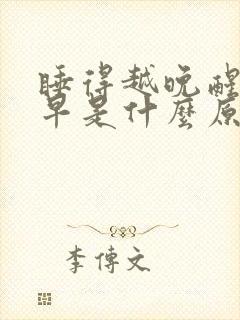 睡得越晚醒
早是什麼原
李傳文